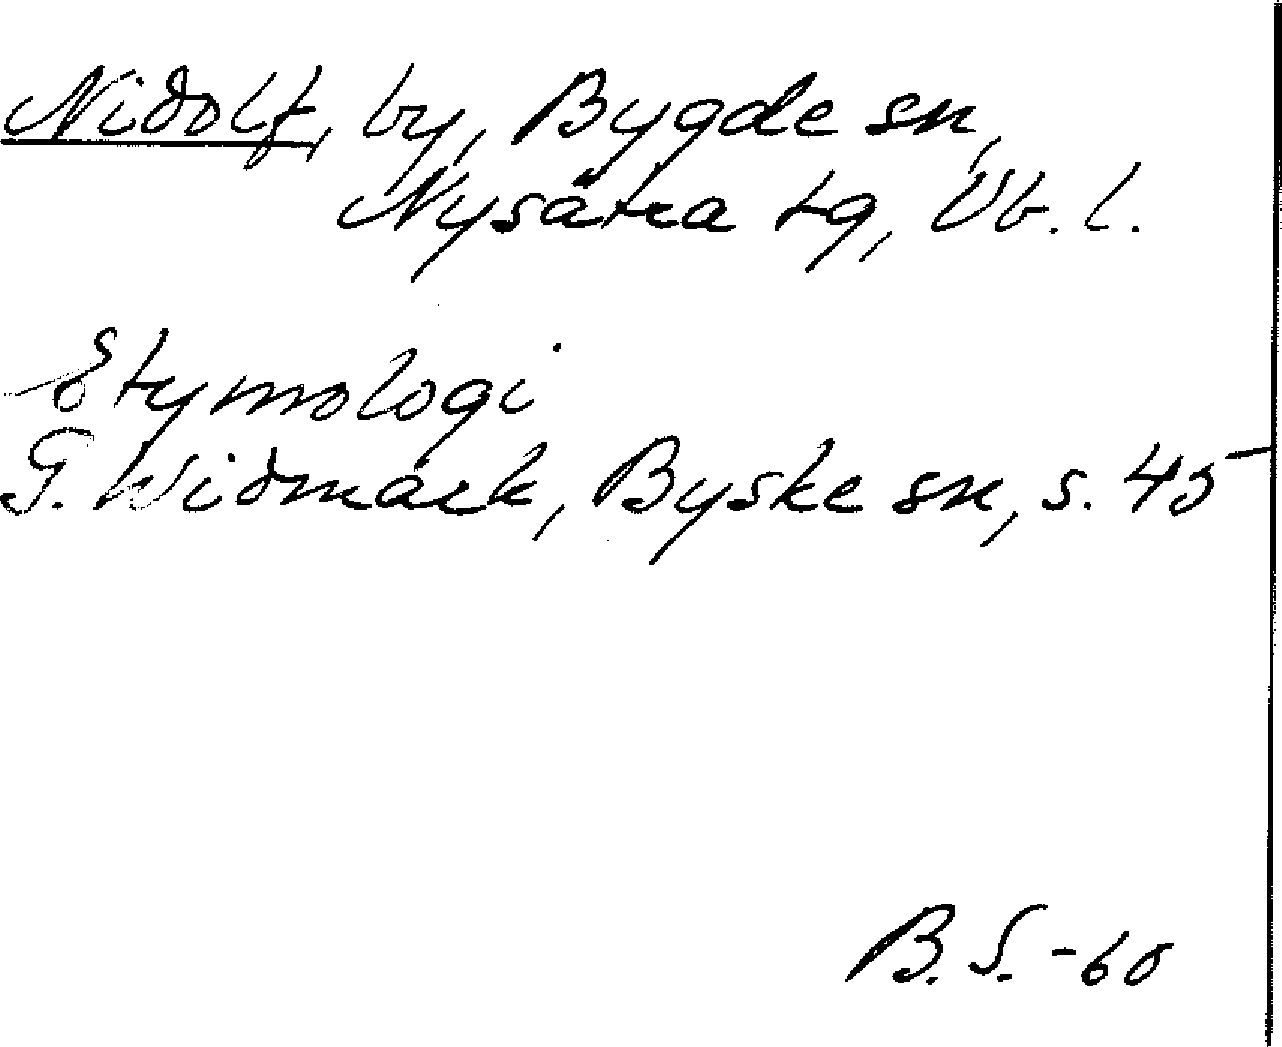 Nidolf, by, Bygde sn,
Nysätra tg, Vb. l.
Etymologi
G. Widmark, Byske sn, s. 45
B. S. -60